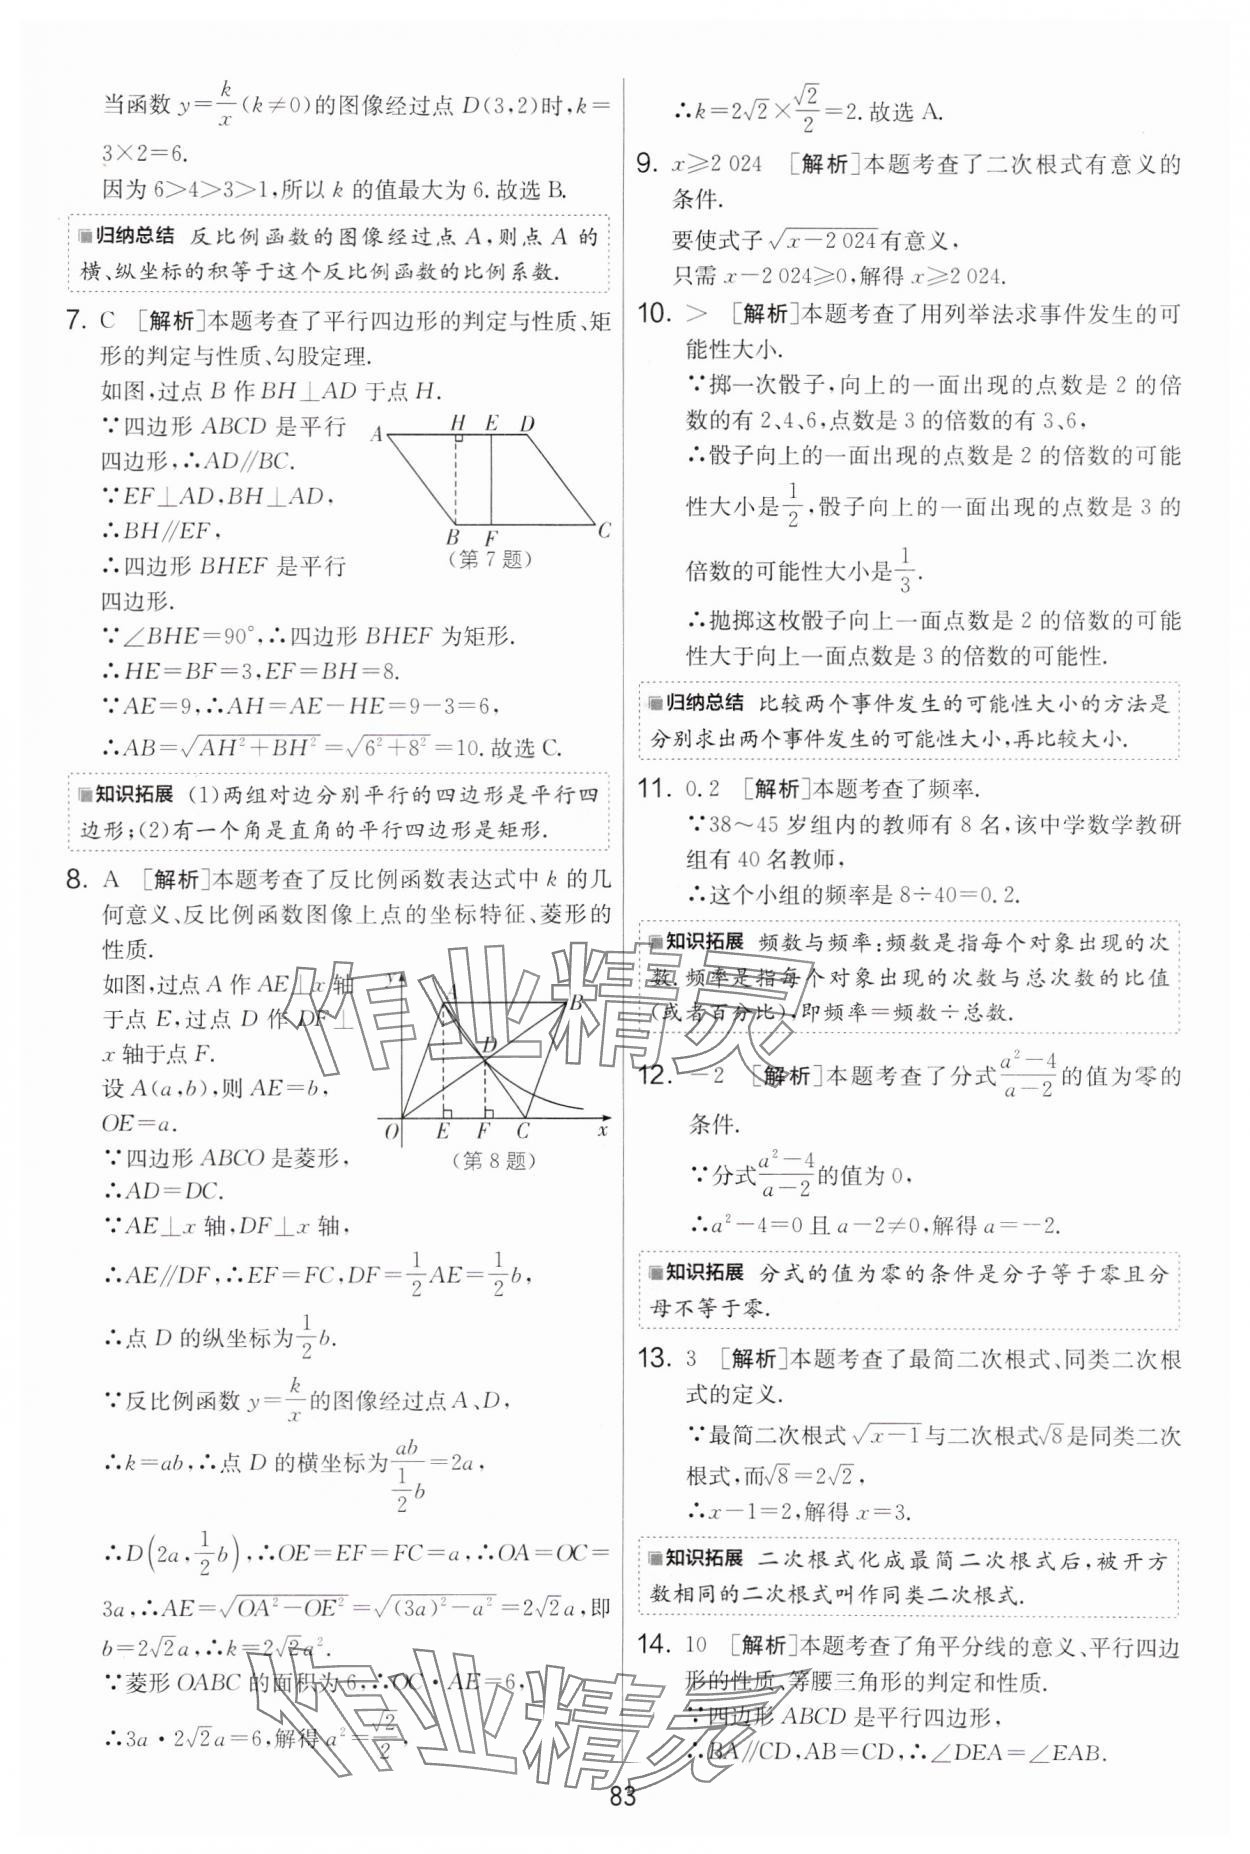 当函数 y=k/x(k≠0)的图像经过点 D(3,2)时,k=
3×2=6.
因为 6>4>3>1,所以 k 的值最大为 6.故选 B.
归纳总结 反比例函数的图像经过点 A,则点 A 的
横、纵坐标的积等于这个反比例函数的比例系数.
7. C [解析]本题考查了平行四边形的判定与性质、矩
形的判定与性质、勾股定理.
如图,过点 B 作 BH⊥AD 于点 H.
∵四边形 ABCD 是平行
四边形,∴AD∥BC.
∵EF⊥AD,BH⊥AD,
∴BH∥EF,
∴四边形 BHEF 是平行
四边形.
A H E D
B F C
(第 7 题)
∵∠BHE=90°,∴四边形 BHEF 为矩形.
∴HE=BF=3,EF=BH=8.
∵AE=9,∴AH=AE-HE=9-3=6,
∴AB=√(AH²+BH²)=√(6²+8²)=10.故选 C.
知识拓展 (1)两组对边分别平行的四边形是平行四
边形;(2)有一个角是直角的平行四边形是矩形.
8. A [解析]本题考查了反比例函数表达式中 k 的几
何意义、反比例函数图像上点的坐标特征、菱形的
性质.
如图,过点 A 作 AE⊥x 轴
于点 E,过点 D 作 DF⊥
x 轴于点 F.
设 A(a,b),则 AE=b,
OE=a.
∵四边形 ABCO 是菱形,
∴AD=DC.
y A B
D
O E F C x
(第 8 题)
∵AE⊥x 轴,DF⊥x 轴,
∴AE∥DF,∴EF=FC,DF=1/2AE=1/2b,
∴点 D 的纵坐标为1/2b.
∵反比例函数 y=k/x的图像经过点 A、D,
∴k=ab,∴点 D 的横坐标为ab/(1/2b)=2a,
∴D(2a,1/2b),∴OE=EF=FC=a,∴OA=OC=
3a,∴AE=√(OA²-OE²)=√((3a)²-a²)=2√2a,即
b=2√2a,∴k=2√2a².
∵菱形 OABC 的面积为 6,∴OC·AE=6,
∴3a·2√2a=6,解得 a²=√2/2,
∴k=2√2×√2/2=2.故选 A.
9. x≥2 024 [解析]本题考查了二次根式有意义的
条件.
要使式子√(x-2 024)有意义,
只需 x-2 024≥0,解得 x≥2 024.
10. > [解析]本题考查了用列举法求事件发生的可
能性大小.
∵掷一次骰子,向上的一面出现的点数是 2 的倍
数的有 2、4、6,点数是 3 的倍数的有 3、6,
∴骰子向上的一面出现的点数是 2 的倍数的可能
性大小是1/2,骰子向上的一面出现的点数是 3 的
倍数的可能性大小是1/3.
∴抛掷这枚骰子向上一面点数是 2 的倍数的可能
性大于向上一面点数是 3 的倍数的可能性.
归纳总结 比较两个事件发生的可能性大小的方法是
分别求出两个事件发生的可能性大小,再比较大小.
11. 0.2 [解析]本题考查了频率.
∵38~45 岁组内的教师有 8 名,该中学数学教研
组有 40 名教师,
∴这个小组的频率是 8÷40=0.2.
知识拓展 频数与频率:频数是指每个对象出现的次
数.频率是指每个对象出现的次数与总次数的比值
(或者百分比),即频率=频数÷总数.
12. -2 [解析]本题考查了分式(a²-4)/(a-2)的值为零的
条件.
∵分式(a²-4)/(a-2)的值为 0,
∴a²-4=0 且 a-2≠0,解得 a=-2.
知识拓展 分式的值为零的条件是分子等于零且分
母不等于零.
13. 3 [解析]本题考查了最简二次根式、同类二次根
式的定义.
∵最简二次根式√(x-1)与二次根式√8是同类二次
根式,而√8=2√2,
∴x-1=2,解得 x=3.
知识拓展 二次根式化成最简二次根式后,被开方
数相同的二次根式叫作同类二次根式.
14. 10 [解析]本题考查了角平分线的意义、平行四边
形的性质、等腰三角形的判定和性质.
∵四边形 ABCD 是平行四边形,
∴BA∥CD,AB=CD,∴∠DEA=∠EAB.
作业精灵
作业精灵
83